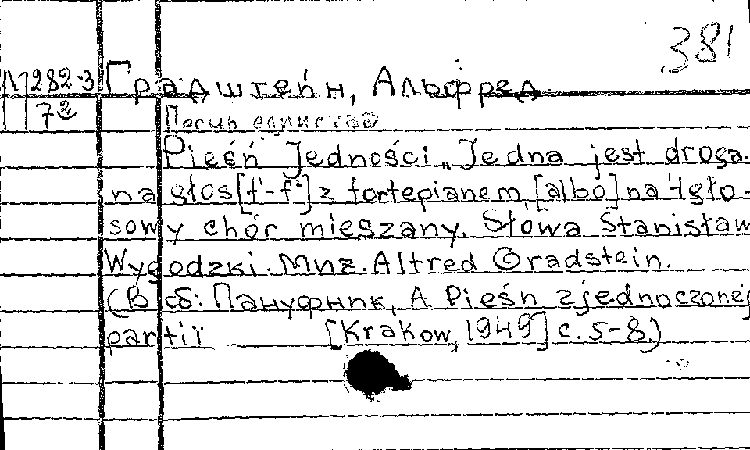 381
Л 282-3 Градштейн, Альфред
72 Песнь единства
Pieśń Jedności „Jedna jest droga.
na głos [f'-f''] z fortepianem, [albo] na 4 gło-
sowy chór mieszany. Słowa Stanisław
Wygodzki. Muz. Alfred Gradstein.
(В сб: Пануфник, А. Pieśń zjednoczonej
partii [Krakow, 1949] с. 5-8.)